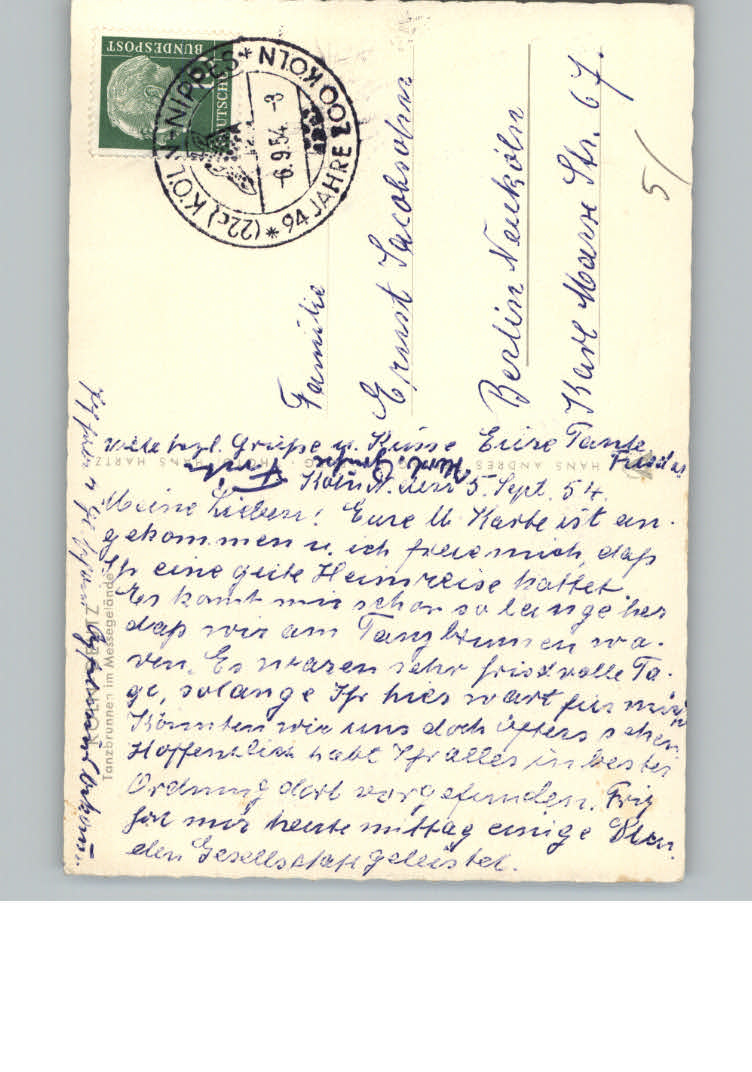 DEUTSCHE BUNDESPOST
(22c) KÖLN-NIPPES * ZOO KÖLN
94 JAHRE *
-6.9.54 -8
Familie
Ernst Jacobsohn
Berlin Neuköln
Karl Marx Str. 67.
5/
HANS ANDRES HANS HARTZ
KÖLN-DEUTZ
Tanzbrunnen im Messegelände
Köln N. den 5. Sept. 54.
Meine Lieben! Eure lb. Karte ist an-
gekommen u. ich freue mich, daß
Ihr eine gute Heimreise hattet.
Es komt mir schon so lange her
daß wir am Tanzbrunnen wa-
ren. Es waren sehr friedvolle Ta-
ge, solange Ihr hier wart für mich
Könnten wir uns doch öfters sehen.
Hoffentlich habt Ihr alles in bester
Ordnung dort vorgefunden. Fritz
hat mir heute mittag einige Stun-
den Gesellschaft geleistet.
Viele herzl. Grüße u. Küsse Eure Tante
Frieda